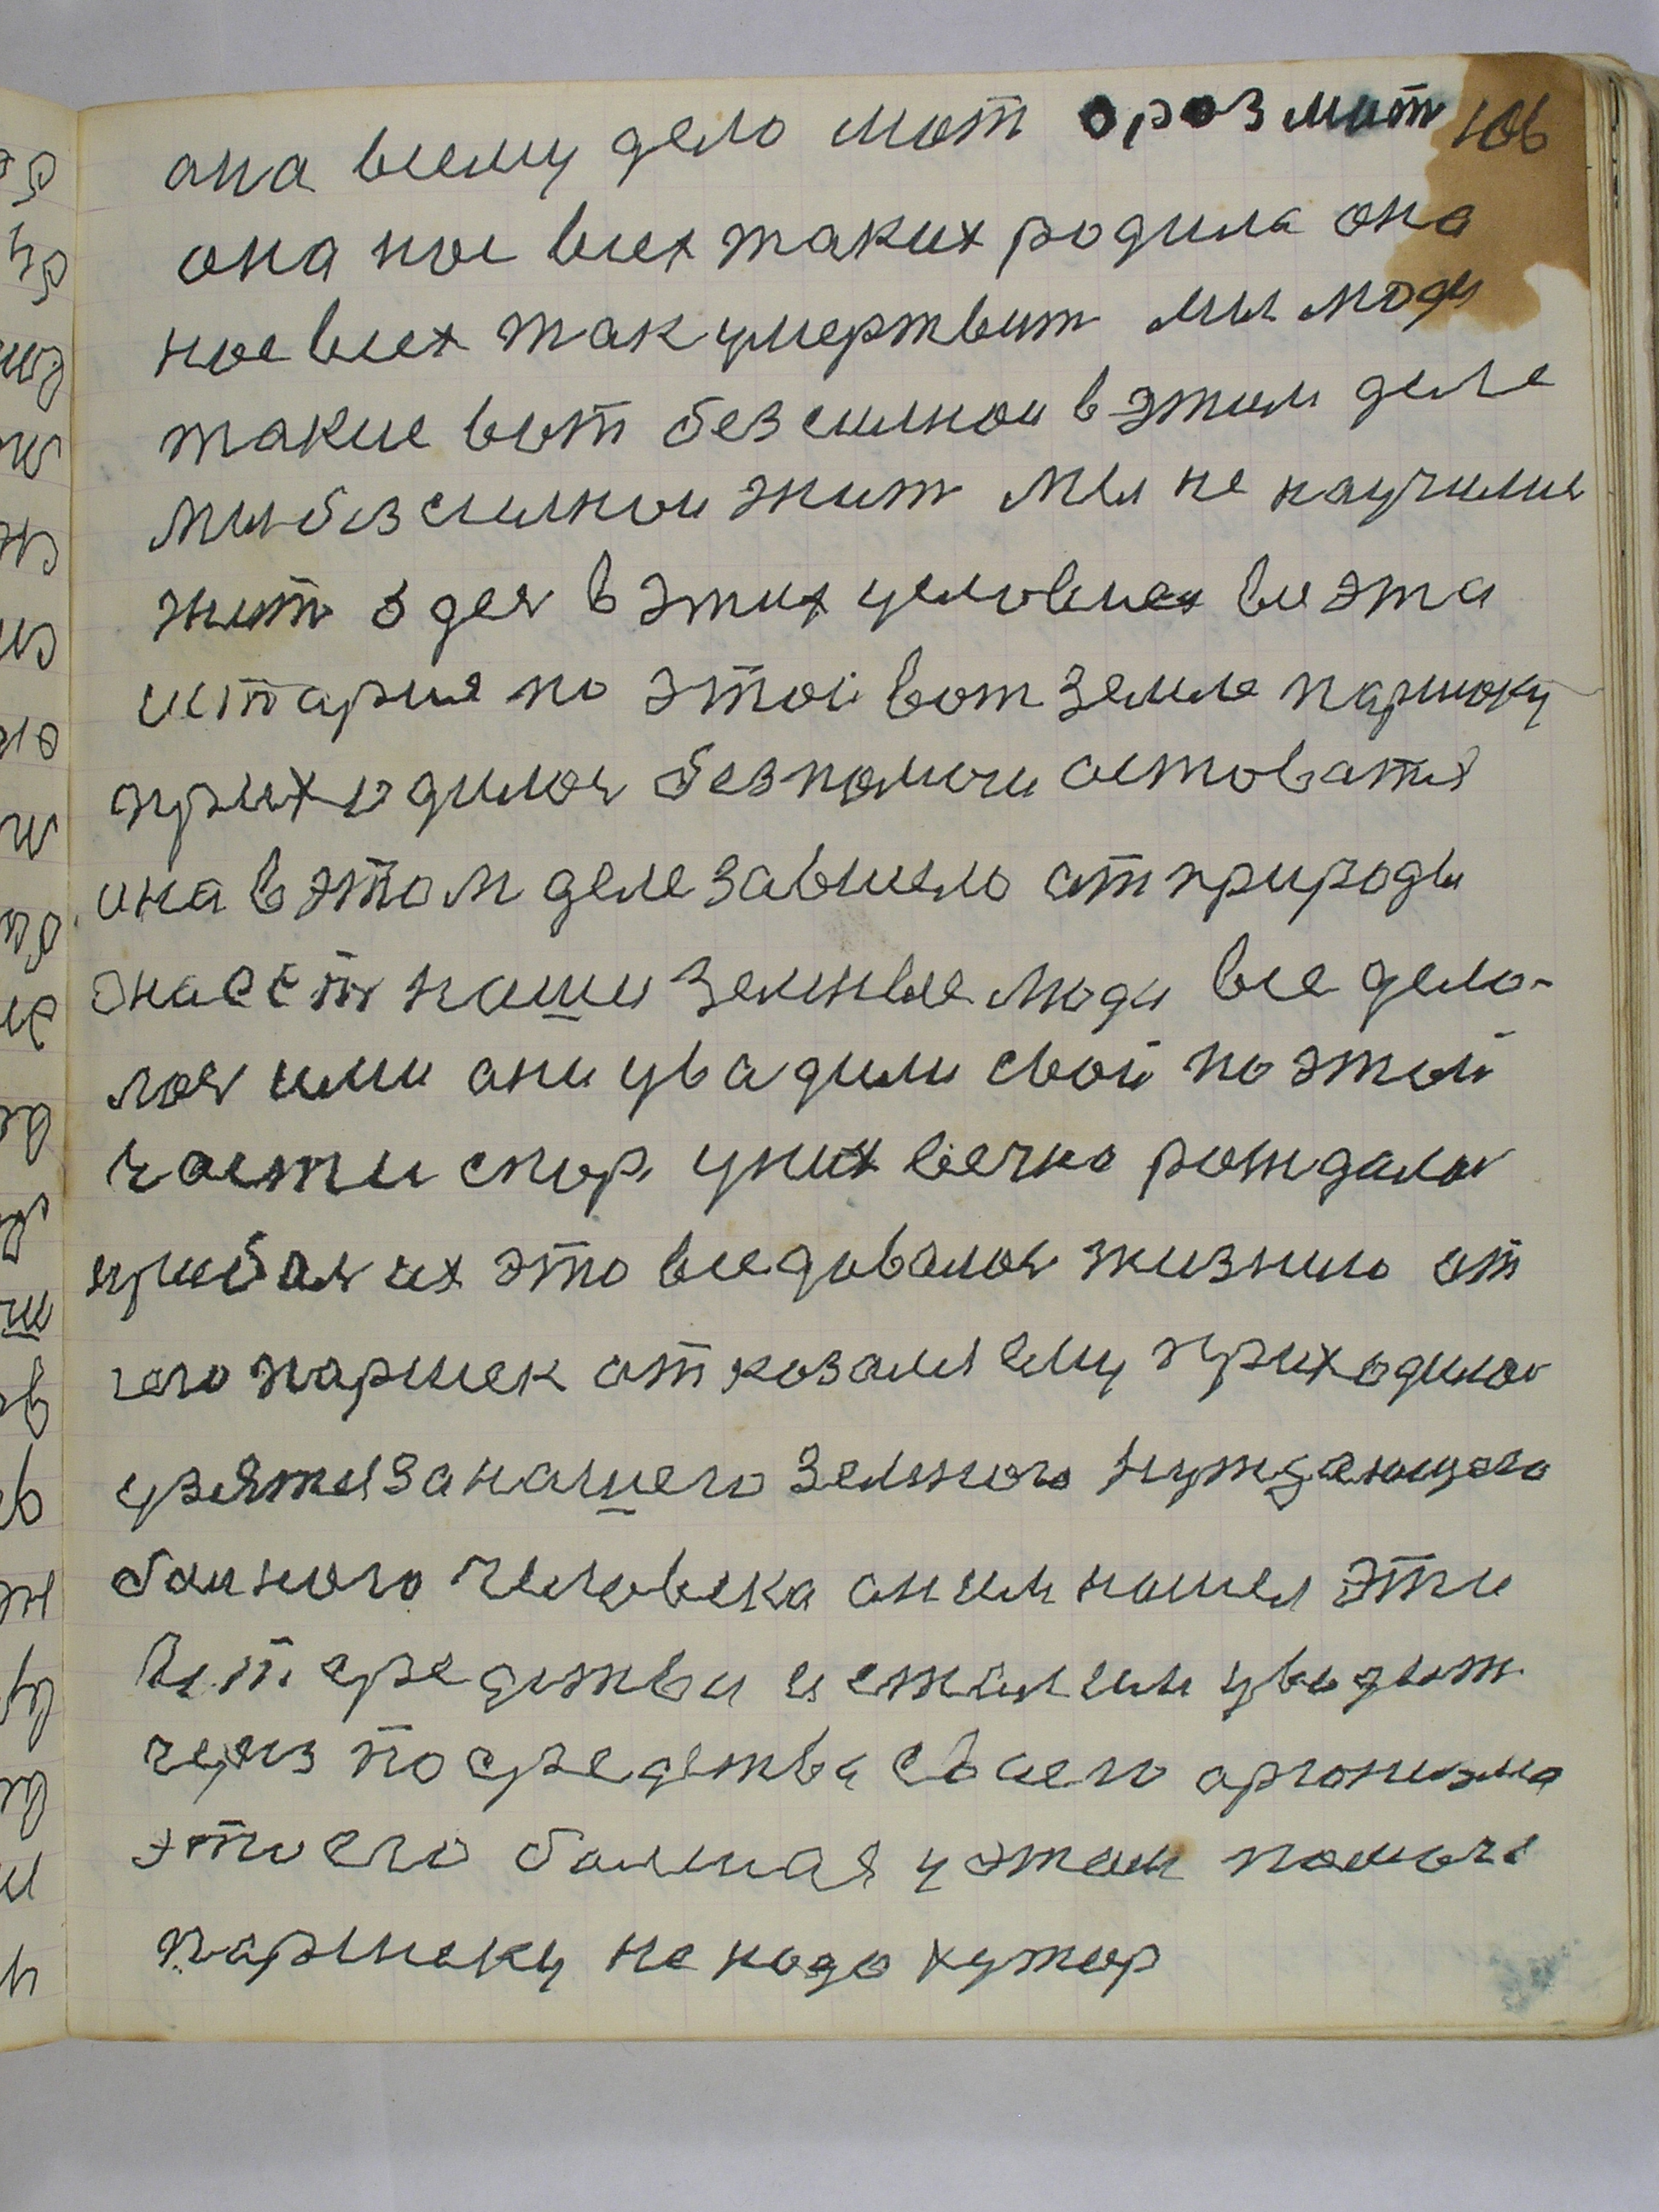 106
она всему дело мат ораз мат
она нас всех таких родила она
нас всех так умертвит мы люди
такие вот без силнои в этим деле
мы без силнои жит мы не научились
жит здес в этих условиях вся эта
история по этой вот земле паршеку
приходилос без помочи астоватся
она в этом деле зависело от природы
она есть наши земные люди все дело-
лос ими ани увадили свой по этой
части спор у них вечно рождалос
прибал их это все довалос жизнию от
чего паршек отказался ему приходилос
узятся за нашего земного нуждающего
болного человека он им нашел эти
вот средства и стал им уводит
через посредства своего организма
это его болшая у этом помоче
паршеку не надо хутор